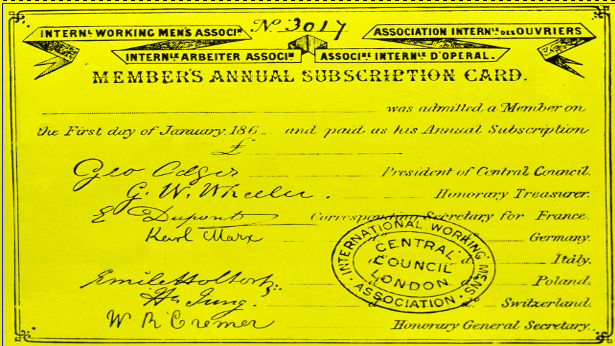 Nº 3017
INTERNL WORKING MEN'S ASSOCIN
ASSOCIATION INTERNLE DES OUVRIERS
INTERNLE ARBEITER ASSOCIN
ASSOCINE INTERNLE D'OPERAI.
MEMBER'S ANNUAL SUBSCRIPTION CARD.
was admitted a Member on
the First day of January 186 and paid as his Annual Subscription
£
Geo Odger President of Central Council.
G. W. Wheeler. Honorary Treasurer.
E Dupont Corresponding Secretary for France.
Karl Marx Germany.
do Italy.
do Poland.
Jung. do Switzerland.
W R Cremer Honorary General Secretary.
INTERNATIONAL WORKING MENS ASSOCIATION.
CENTRAL
COUNCIL
LONDON